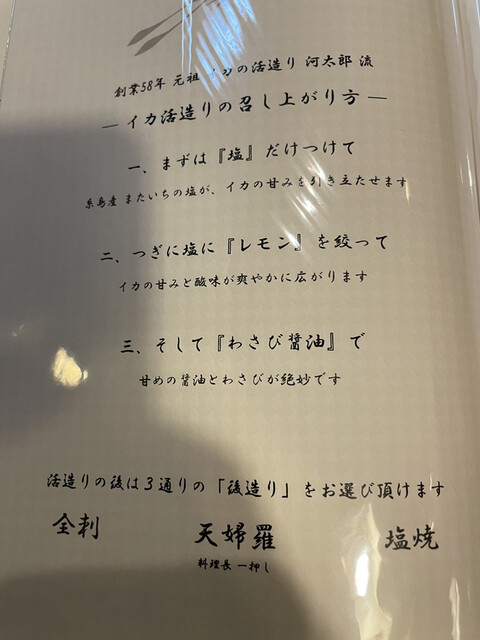 創業58年 元祖 イカの活造り 河太郎 流
― イカ活造りの召し上がり方 ―
一、まずは『塩』だけつけて
糸島産 またいちの塩が、イカの甘みを引き立たせます
二、つぎに塩に『レモン』を絞って
イカの甘みと酸味が爽やかに広がります
三、そして『わさび醤油』で
甘めの醤油とわさびが絶妙です
活造りの後は3通りの「後造り」をお選び頂けます
全刺 天婦羅 塩焼
料理長 一押し